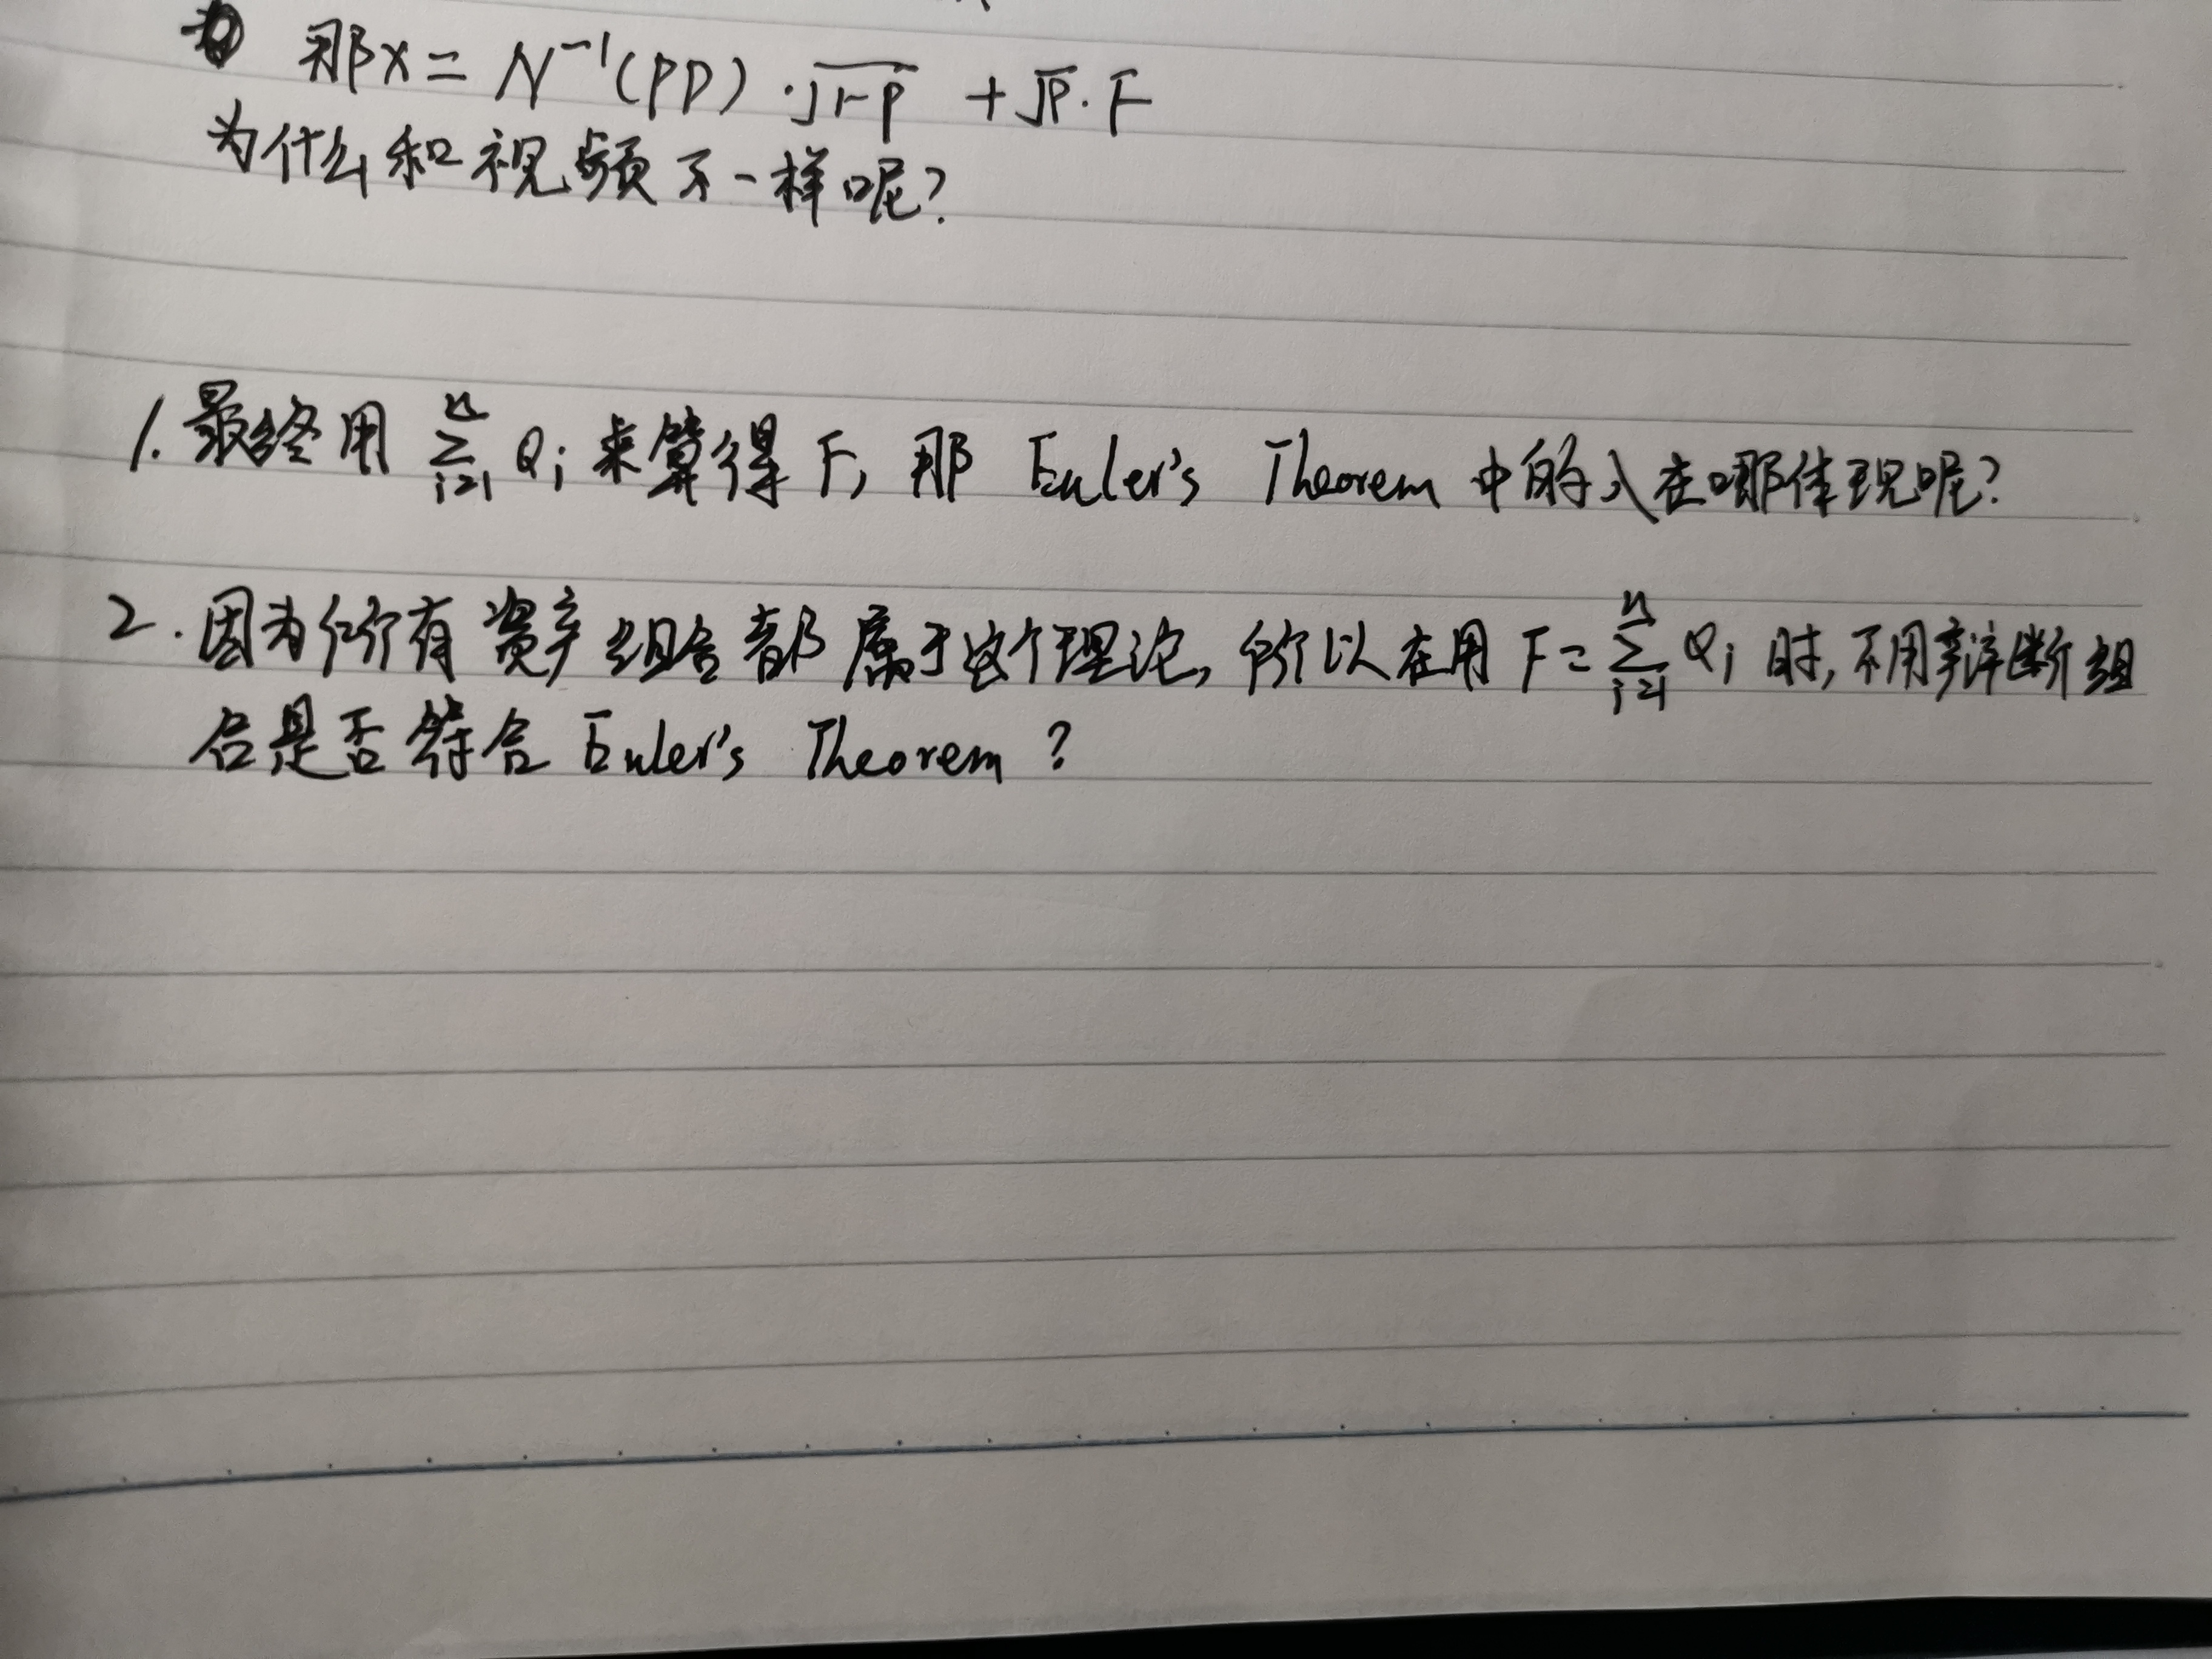 那x = N⁻¹(PD)·√1-ρ + √ρ·F
为什么和视频不一样呢?
1.最终用 ∑ⁿᵢ₌₁ Qᵢ 来算得 F, 那 Euler's Theorem 中的λ在哪体现呢?
2.因为所有资产组合都属于这个理论,所以在用 F=∑ⁿᵢ₌₁ Qᵢ 时,不用辩断组
合是否符合 Euler's Theorem ?